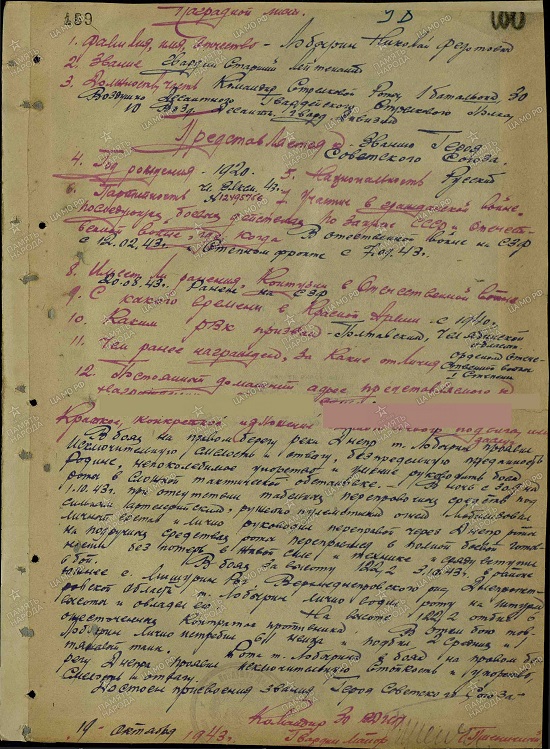 189
Наградной лист.
1. Фамилия, имя, отчество – Лобырин Николай Федотович
2. Звание Гвардии Старший лейтенант
3. Должность, часть Командир Стрелковой Роты 1 батальона, 30
Воздушно Десантного Гвардейского Стрелкового Полка,
10 Возд. Десантн. Гвард. Дивизии
Представляется к Званию Героя
Советского Союза.
4. Год рождения – 1920. 5. Национальность Русский
6. Партийность чл. ВЛКСМ. 7. Участие в гражданской войне,
последующих боевых действиях по защите СССР и отечест-
венной войне, где когда В отечественной войне на СЗФ
с 12.02.43. и Степном фронте с 7.09.43 г.
8. Имеет ли ранения, контузии в Отечественной войне
20.08.43 ранен на СЗФ
9. С какого времени в Красной Армии – с 1940 г.
10. Каким РВК призван – Полтавским, Челябинской
области
11. Чем ранее награжден, за какие отличия Орденом Отече-
ственной войны
12. Постоянный домашний адрес представляемого к
Краткое, конкретное изложение подвига, или
В боях на правом берегу реки Днепр т. Лобырин проявил
исключительную смелость и отвагу, безпредельную преданность
Родине, непоколебимое упорство и умение руководить боем
роты в сложной тактической обстановке. – В ночь с 30.9 на
1.10.43 г. при отсутствии табельных переправочных средств под
сильным артиллерийским, ружейно пулеметным огнем мобилизовал
личный состав и лично руководил переправой через Днепр роты
на подручных средствах рота переправилась в полной боевой готов-
ности без потерь в живой силе и технике и сразу вступила
в бой. В боях за высоту 122,2 3.10.43 г. в районе
южнее с. Мишурин Рог Верхнеднепровского р-на, Днепропет-
ровской области т. Лобырин лично водил роту на штурм
высоты и овладел ею. На высоте 122,2 отбил 6
ожесточенных контратак противника. В этом бою тов.
Лобырин лично истребил 6 немцев и подбил 2 средних и
танк. Рота т. Лобырина в боях на правом бе-
регу Днепра проявила исключительную стойкость и упорство,
смелость и отвагу.
Достоин присвоения звания Героя Советского Союза.
Командир 30
Гвардии Майор
14 октября 1943 г.